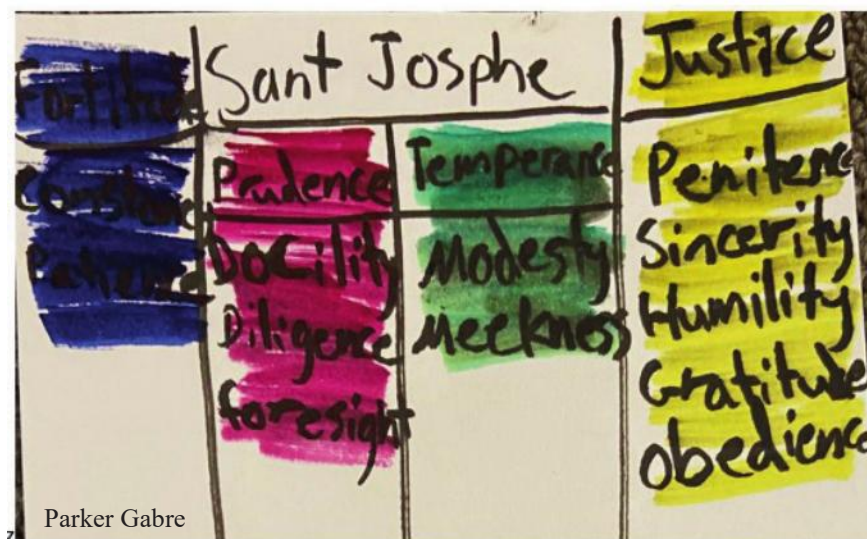 Sant Josphe
Fortitude
Constanc
Patience
Prudence
Docility
Diligence
foresight
Temperance
Modesty
Meekness
Justice
Penitence
Sincerity
Humility
Gratitude
obedience
Parker Gabre